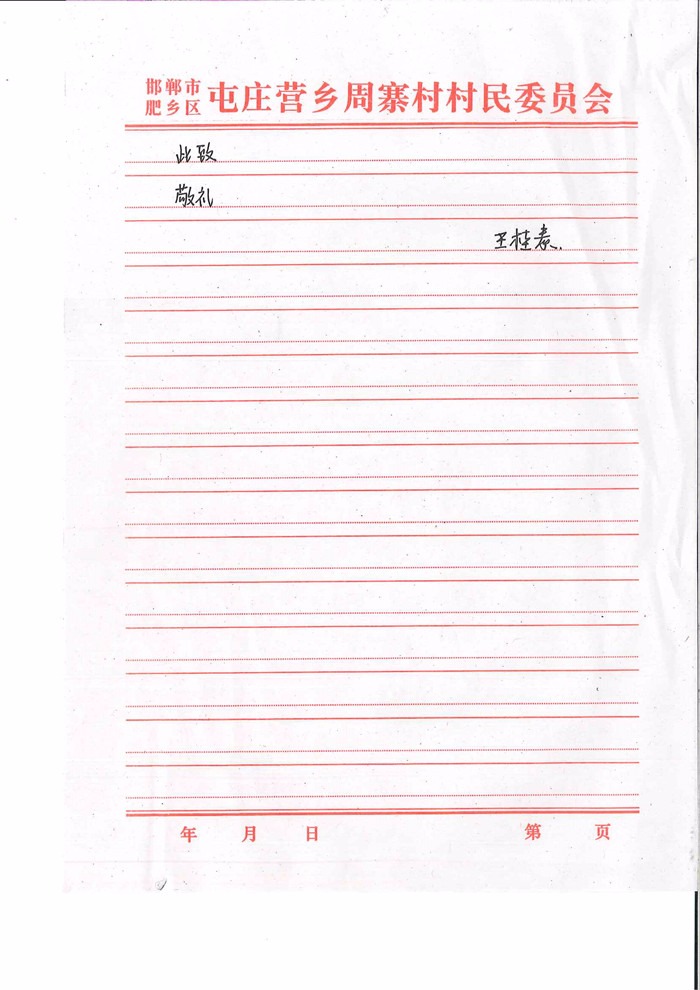 邯郸市肥乡区 屯庄营乡周寨村村民委员会
此致
敬礼
王桂素.
年 月 日 第 页